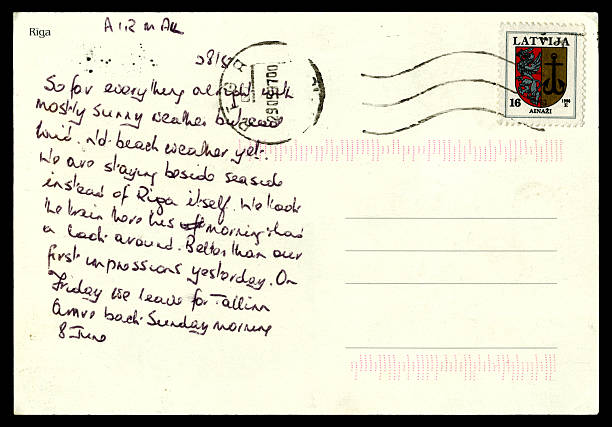 Riga
AIR MAIL
28/5/
So far everything alright with
mostly sunny weather but
wind. No beach weather yet.
We are staying beside seaside
instead of Riga itself. We took
the train here this morning + had
a look around. Better than our
first impressions yesterday. On
Friday we leave for Tallinn
arrive back Sunday morning
8 June
LATVIJA
16
1996
AINAŽI